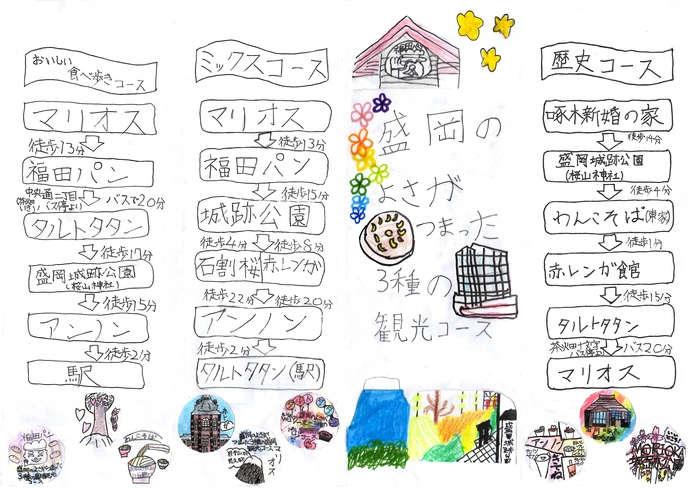 おいしい
食べ歩きコース
マリオス
徒歩13分
福田パン
中央通二丁目
バス停より
バスで20分
タルトタタン
徒歩17分
盛岡城跡公園
(桜山神社)
徒歩15分
アンノン
徒歩2分
駅
福田パン
ミックスコース
マリオス
徒歩13分
福田パン
徒歩15分
城跡公園
徒歩4分 徒歩8分
石割桜 赤レンガ
徒歩22分 徒歩20分
アンノン
徒歩2分
タルトタタン(駅)
マリオス
盛岡の
よさが
つまった
3種の
観光コース
歴史コース
啄木新婚の家
徒歩14分
盛岡城跡公園
(桜山神社)
徒歩4分
わんこそば(東家)
徒歩1分
赤レンガ館
徒歩15分
タルトタタン
茶畑十文字
バス停より
バス20分
マリオス
MORIOKA